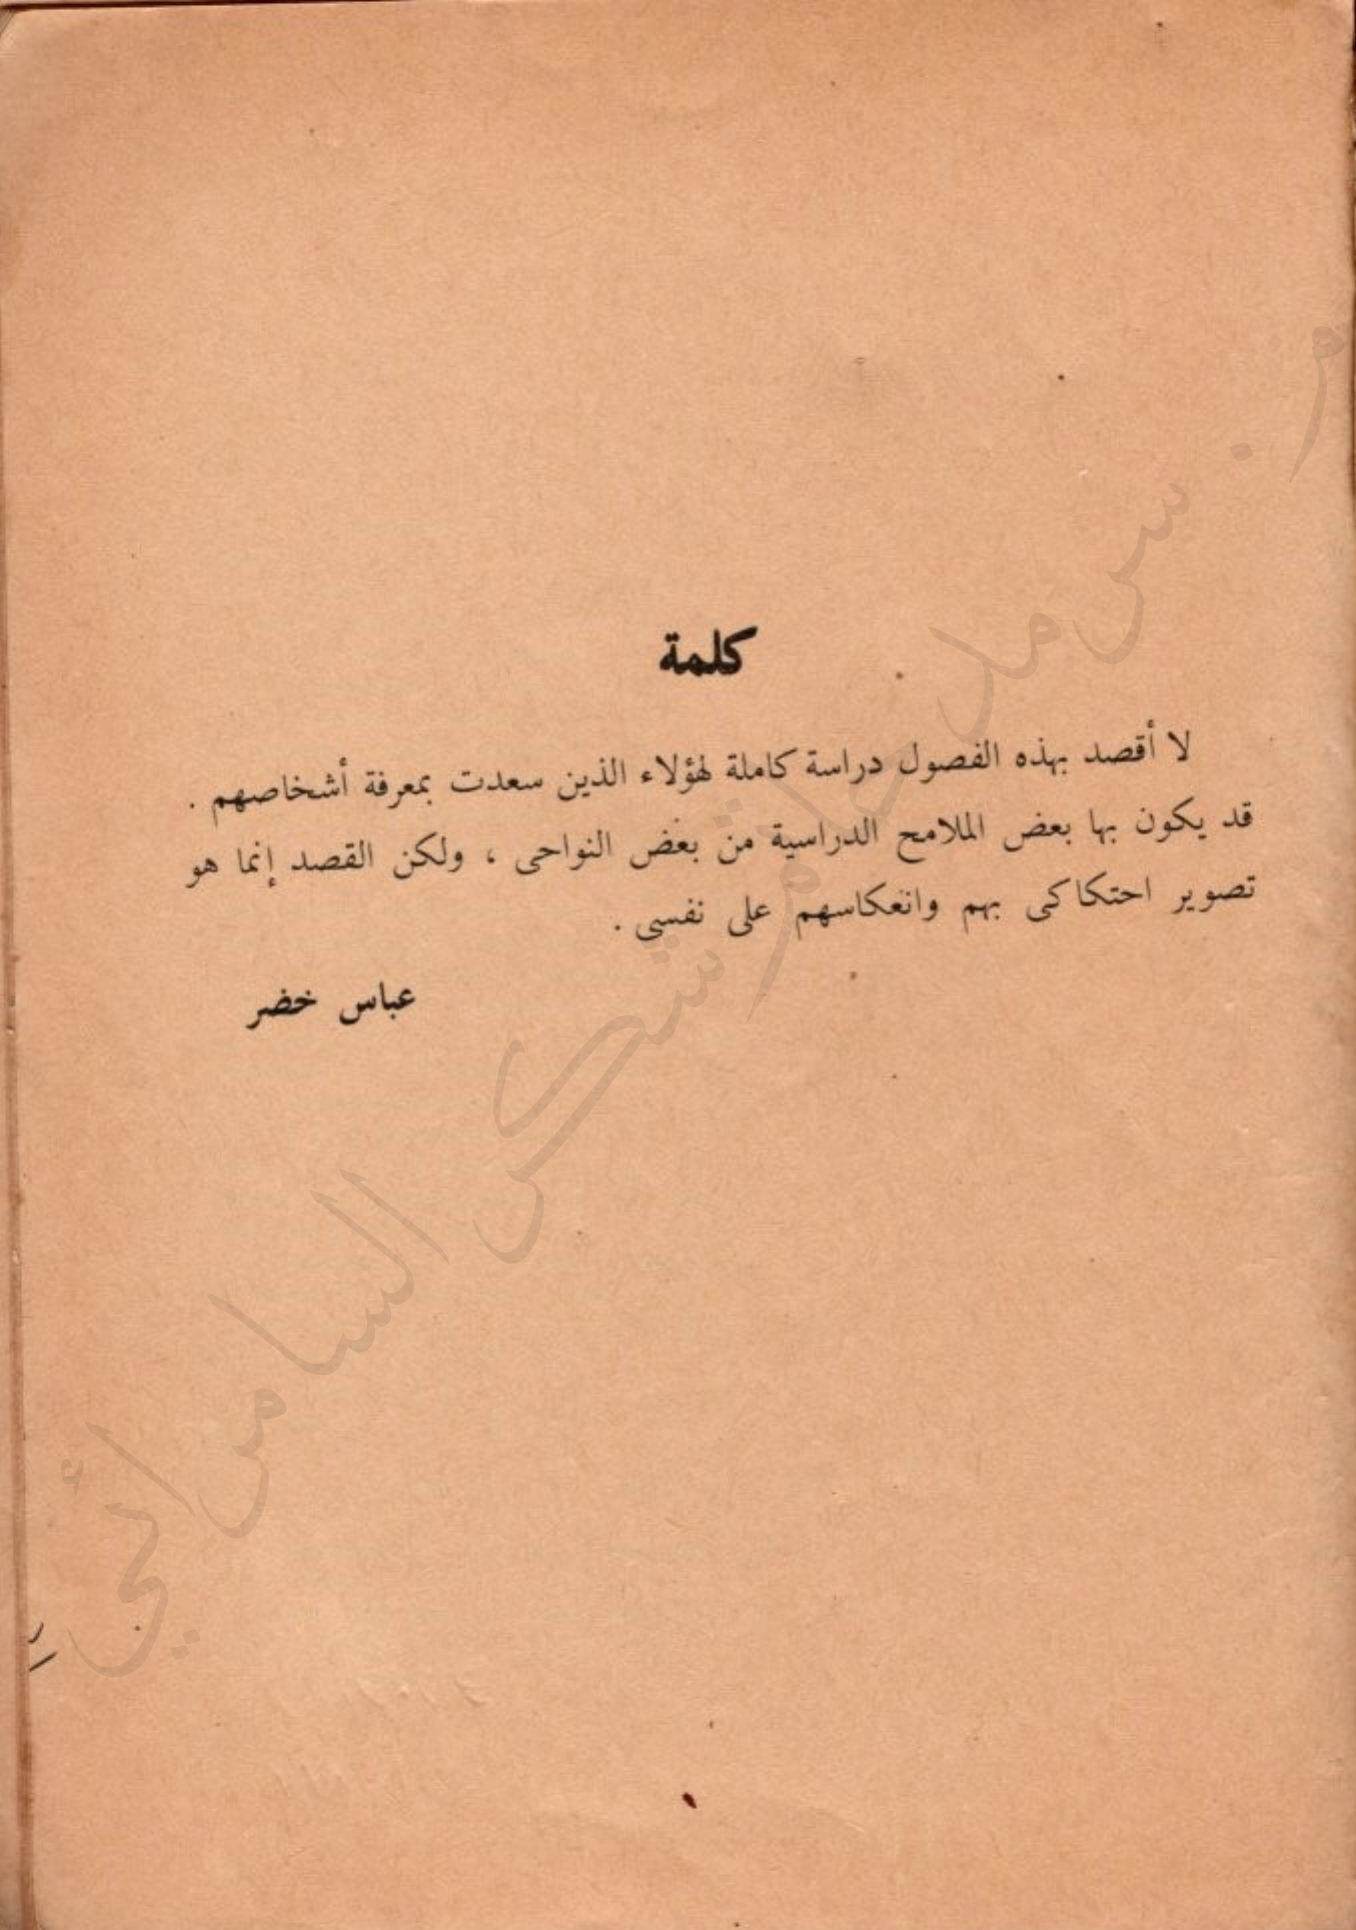 كلمة
لا أقصد بهذه الفصول دراسة كاملة لهؤلاء الذين سعدت بمعرفة أشخاصهم .
قد يكون بها بعض الملامح الدراسية من بعض النواحى ، ولكن القصد إنما هو
تصوير احتكاكى بهم وانعكاسهم على نفسى .
عباس خضر
شكر السامرائي